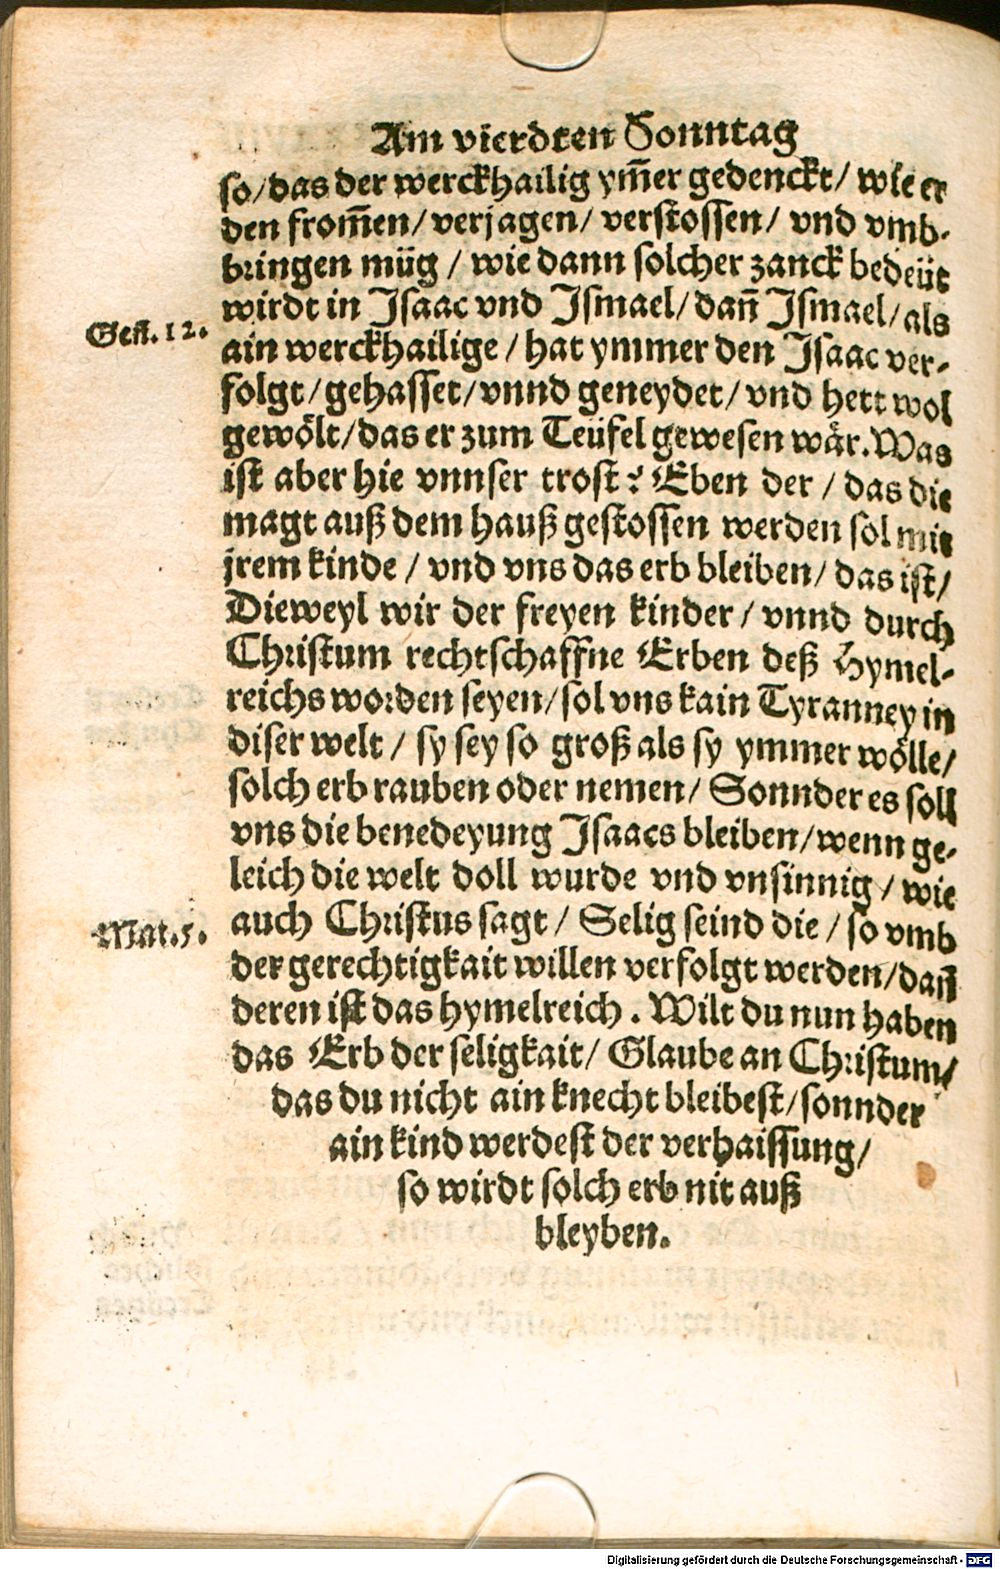 Am vierdten Sonntag
so/das der werckhailig ym̃er gedenckt/ wie er
den from̃en/verjagen/ verstossen/ vnd vmb-
bringen müg / wie dann solcher zanck bedeüt
wirdt in Isaac vnd Ismael/dañ Ismael/als
Gen. 12.
ain werckhailige / hat ymmer den Isaac ver-
folgt/gehasset/vnnd geneydet/ vnd hett wol
gewoͤlt/das er zum Teüfel gewesen waͤr. Was
ist aber hie vnnser trost? Eben der / das die
magt auß dem hauß gestossen werden sol mit
jrem kinde / vnd vns das erb bleiben/ das ist/
Dieweyl wir der freyen kinder / vnnd durch
Christum rechtschaffne Erben deß Hymel-
reichs worden seyen/sol vns kain Tyranney in
diser welt / sy sey so groß als sy ymmer woͤlle/
solch erb rauben oder nemen/ Sonnder es soll
vns die benedeyung Isaacs bleiben/wenn ge-
leich die welt doll wurde vnd vnsinnig / wie
Mat.5.
auch Christus sagt / Selig seind die / so vmb
der gerechtigkait willen verfolgt werden/dañ
deren ist das hymelreich. Wilt du nun haben
das Erb der seligkait/ Glaube an Christum/
das du nicht ain knecht bleibest/sonnder
ain kind werdest der verhaissung/
so wirdt solch erb nit auß
bleyben.
Digitalisierung gefördert durch die Deutsche Forschungsgemeinschaft - DFG